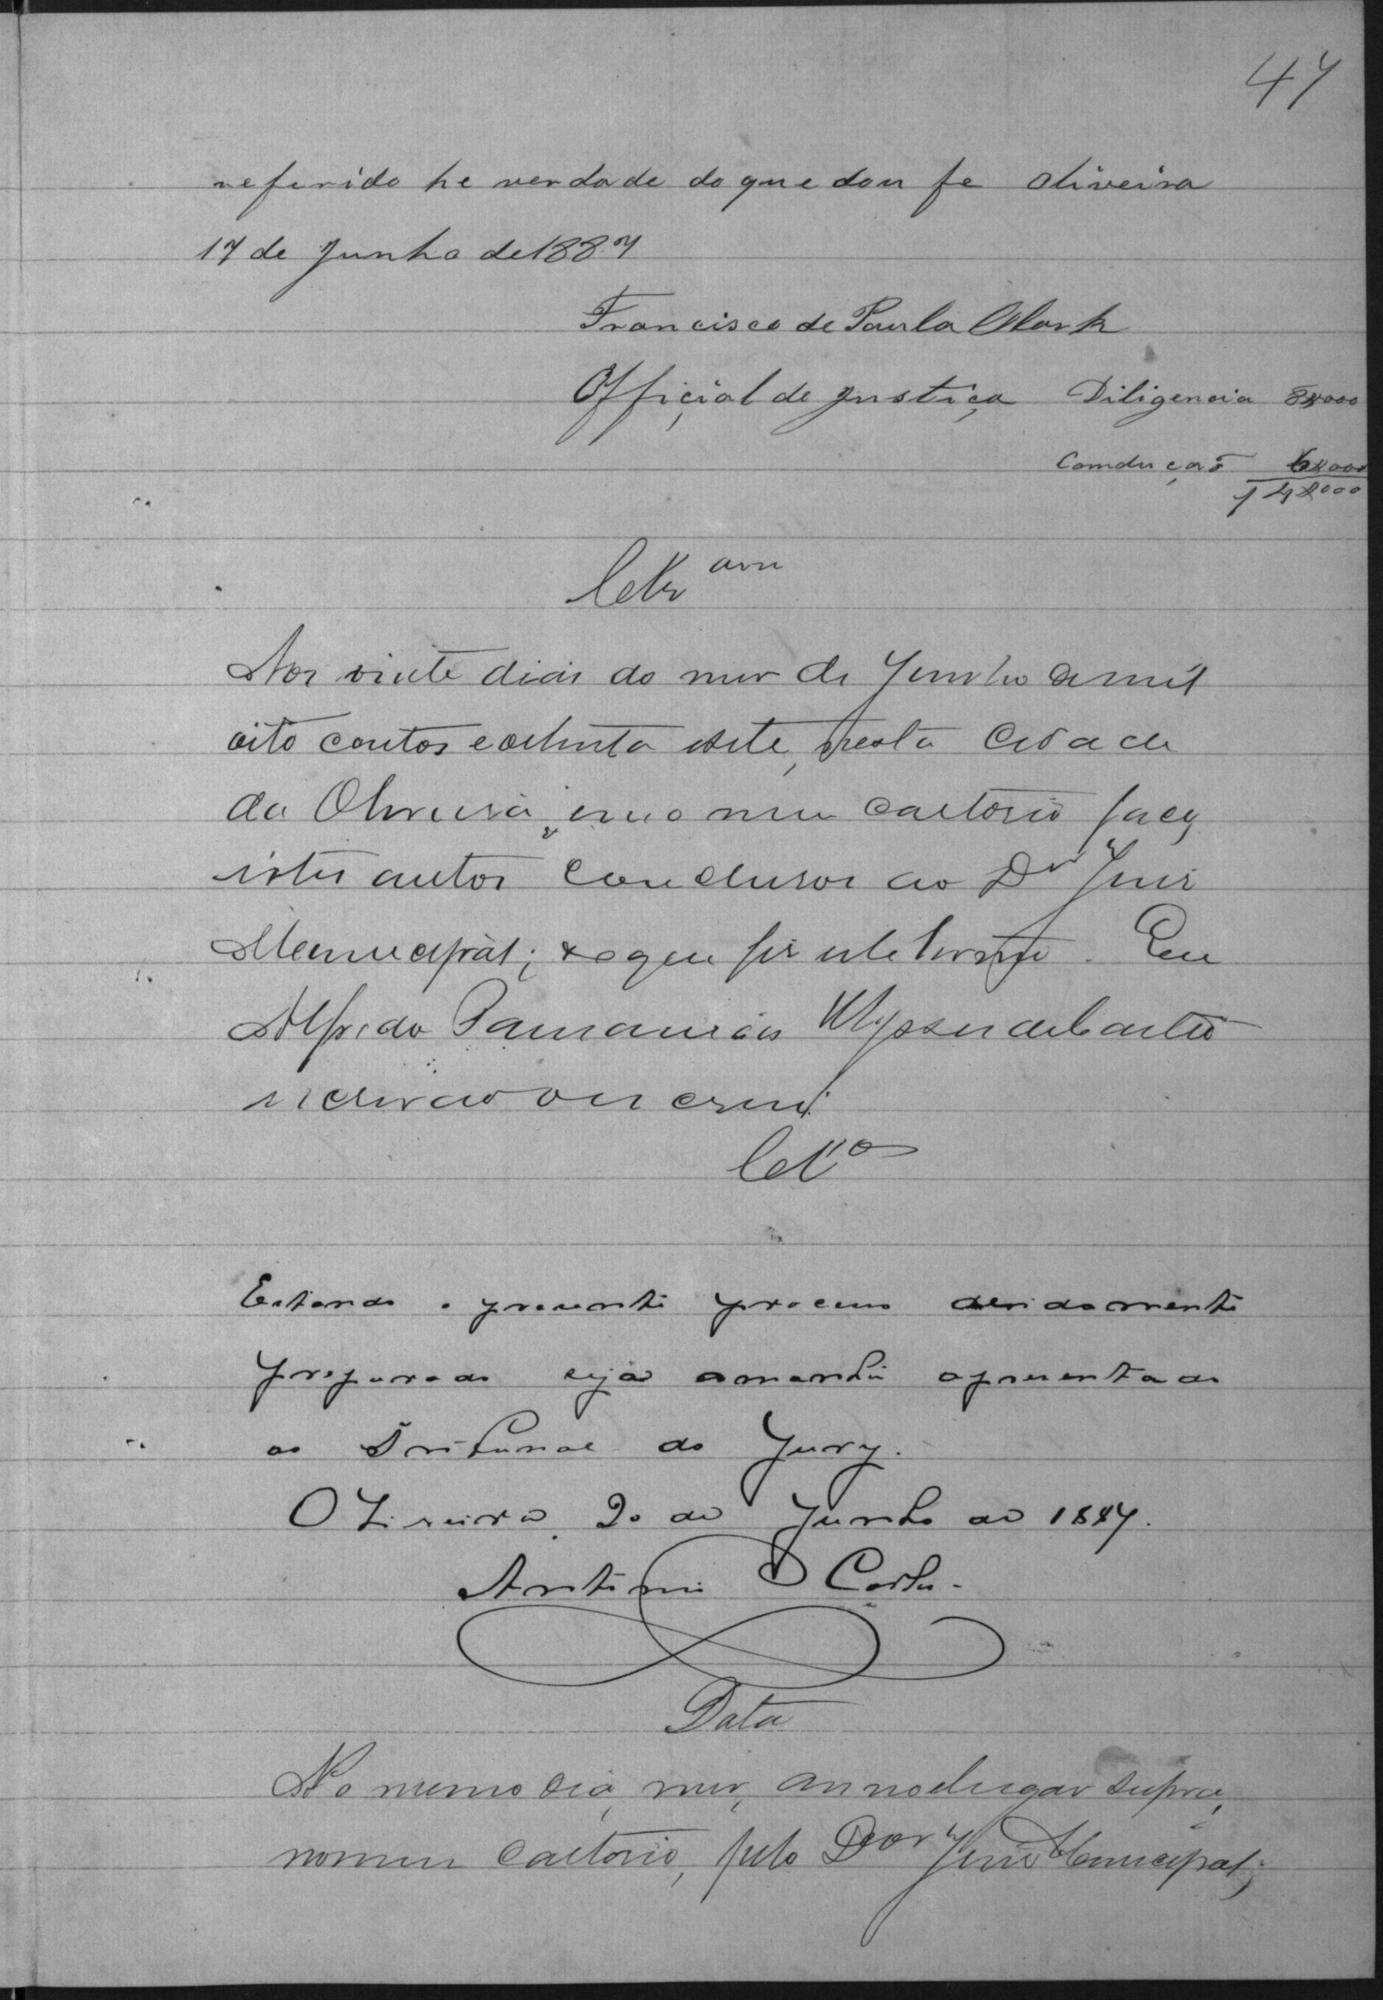 47
referido he verdade do que dou fe Oliveira
17 de Junho de 1887
Francisco de Paula Clark
Official de justiça Diligencia 8$000
Conduçaõ 6$000
14$000
Clz.am
Aos vinte dias do mez de Junho de mil
oito centos e oitenta e sete, nesta Cidade
da Oliveira, em o meu cartorio faço
estes autos conclusos ao Dr. Juiz
Municipal; do que fiz este termo. Eu
Alfredo Ulysses de Castro
escrivão que escrevi.
Clz.o
Estando o presente processo devidamente
preparado seja amanhã apresentado
ao Tribunal do Jury.
Oliveira, 20 de Junho de 1887.
Antonio Costa.
Data
No mesmo dia, mez, anno e lugar supra,
no meu cartorio, pelo Dor Juiz Municipal;